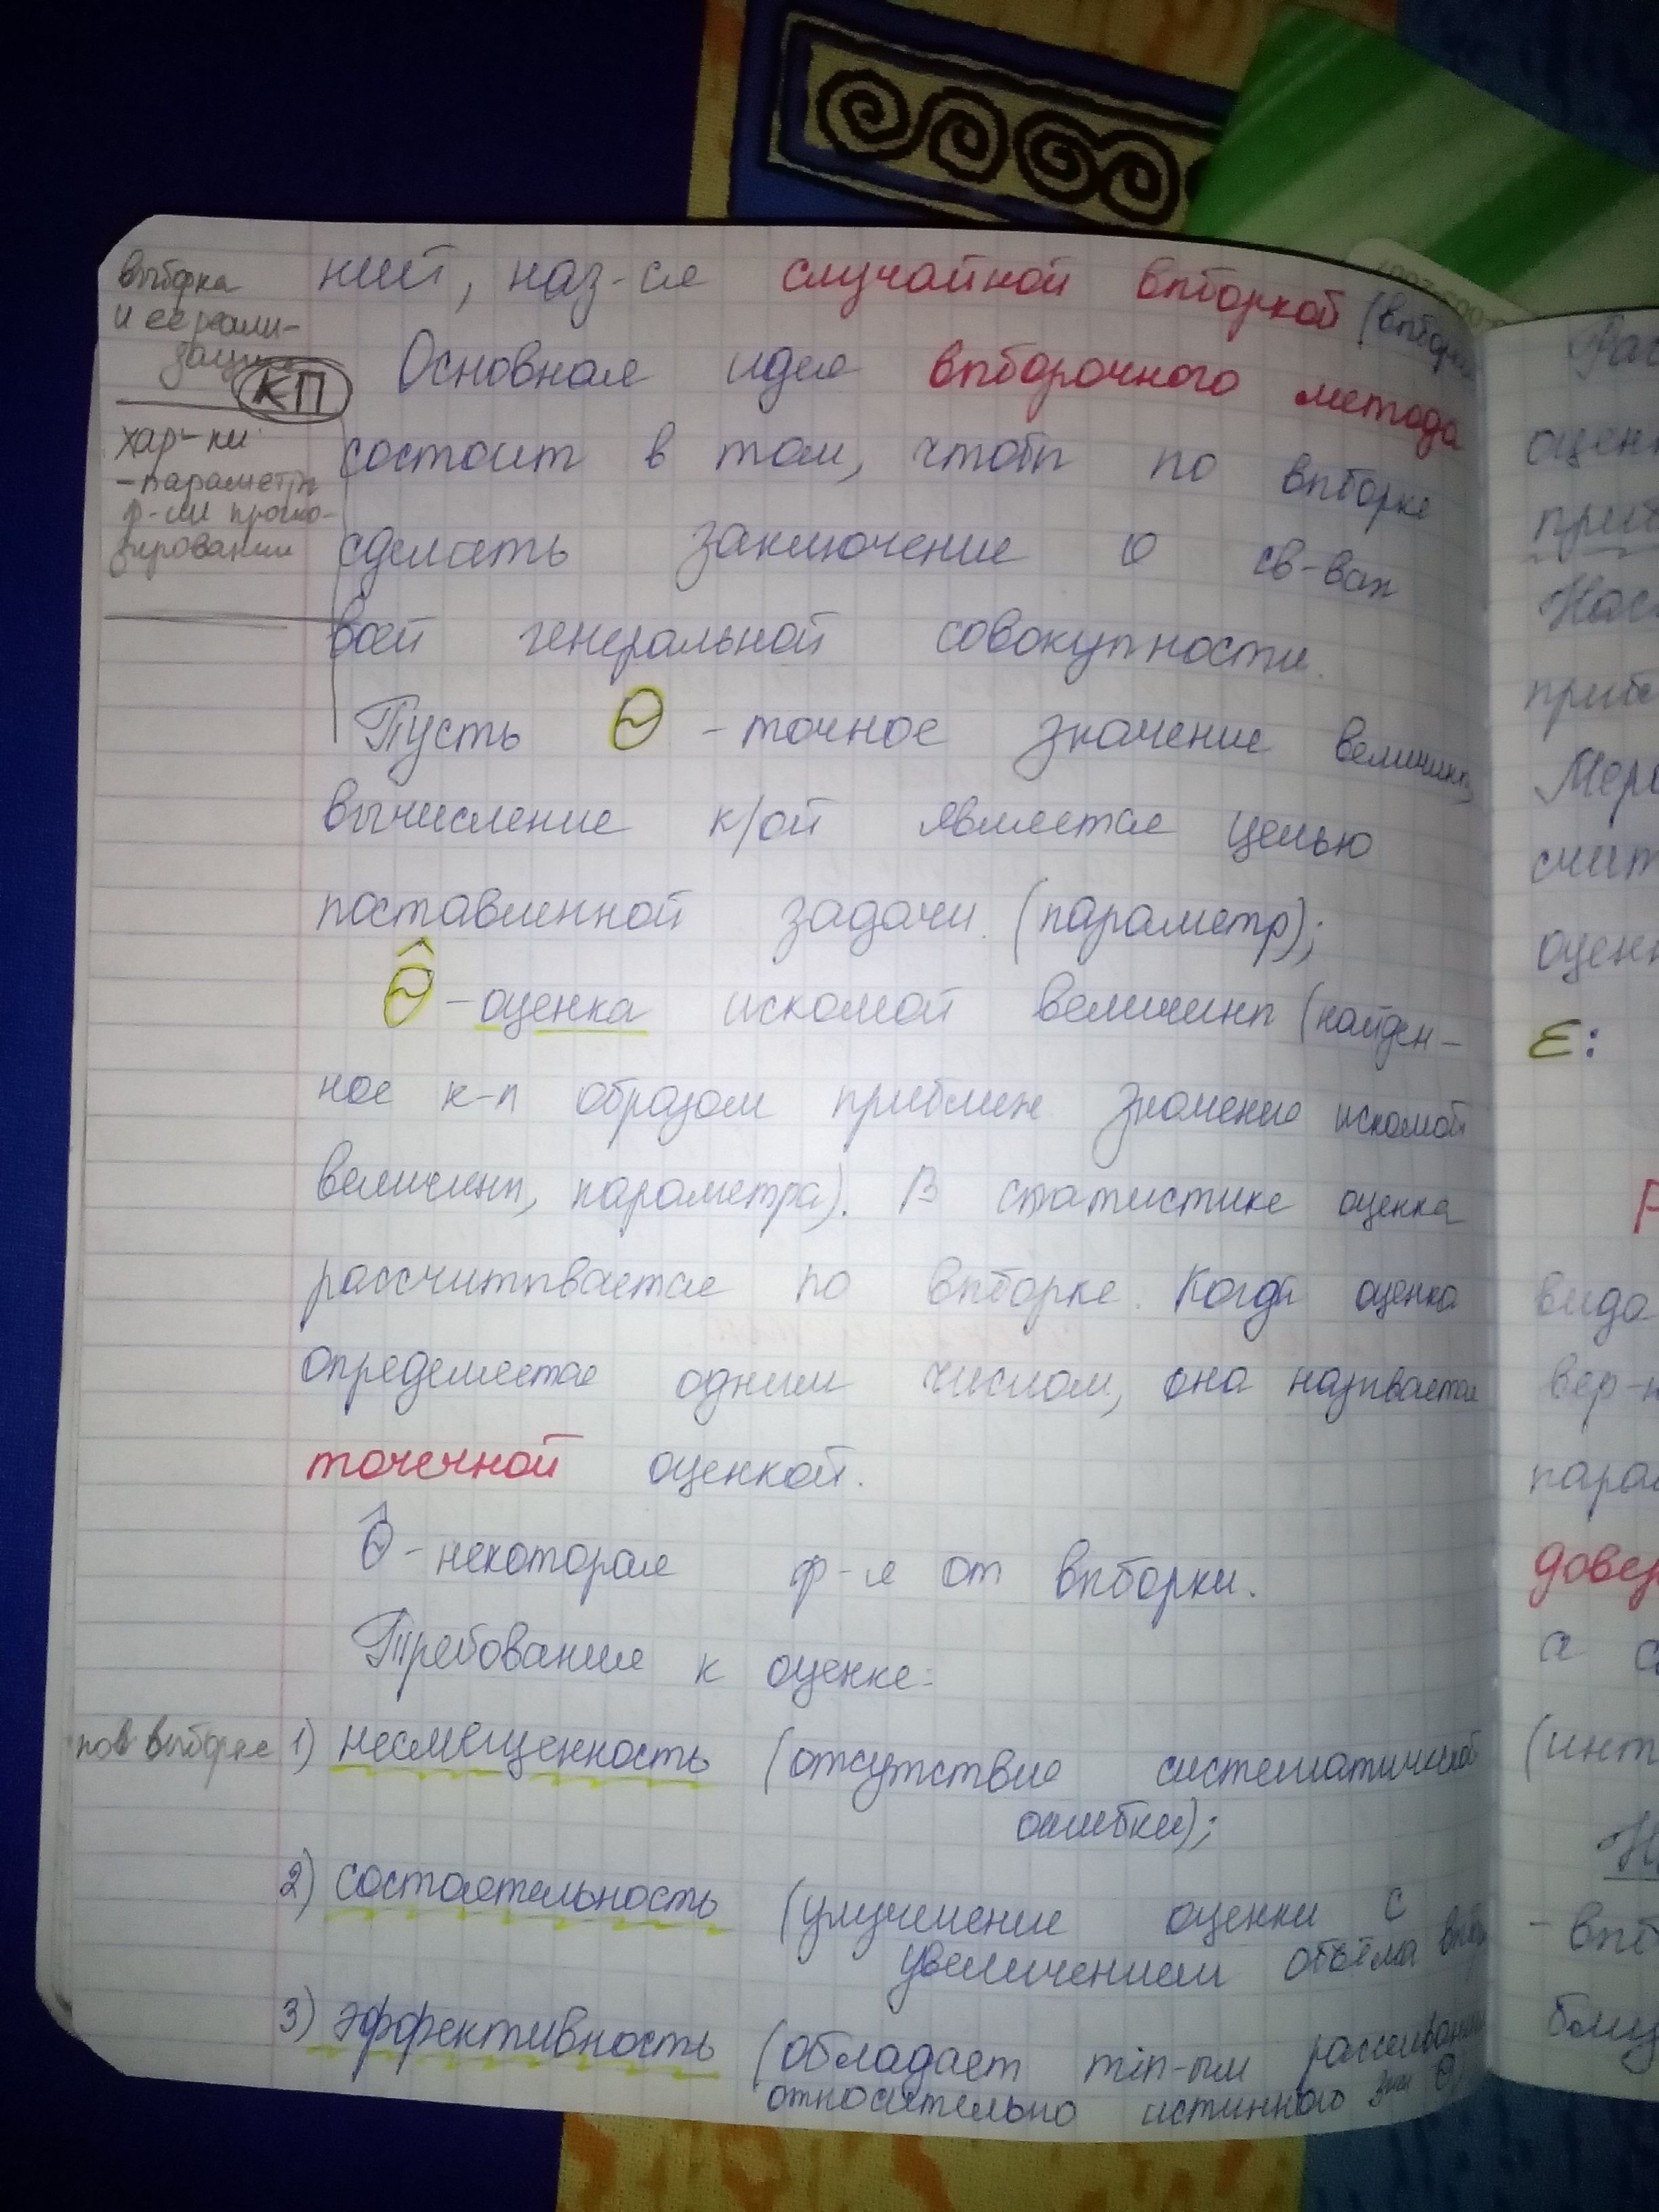 выборка
и ее реали-
зация
КП
хар-ки
-параметры
ф-ии прогно-
зировании
ний, наз-ся случайной выборкой (выборка
Основная идея выборочного метода
состоит в том, чтобы по выборке
сделать заключение о св-вах
всей генеральной совокупности.
Пусть Θ - точное значение величины,
вычисление к/ой является целью
поставленной задачи. (параметр);
Θ̂ - оценка искомой величины (найден-
ное к-л образом приближ значение искомой
величины, параметра). В статистике оценка
рассчитывается по выборке. Когда оценка
определяется одним числом, она называется
точечной оценкой.
Θ̂ - некоторая ф-я от выборки.
Требования к оценке:
пов выборке 1) несмещенность (отсутствие систематической
ошибки);
2) состоятельность (улучшение оценки с
увеличением объёма выбор
3) эффективность (обладает min-ым рассеиванием
относительно истинного зн Θ)
оцен
Мера
счит
оцен
ε:
вида
вер-н
парам
довер
а с
(инт